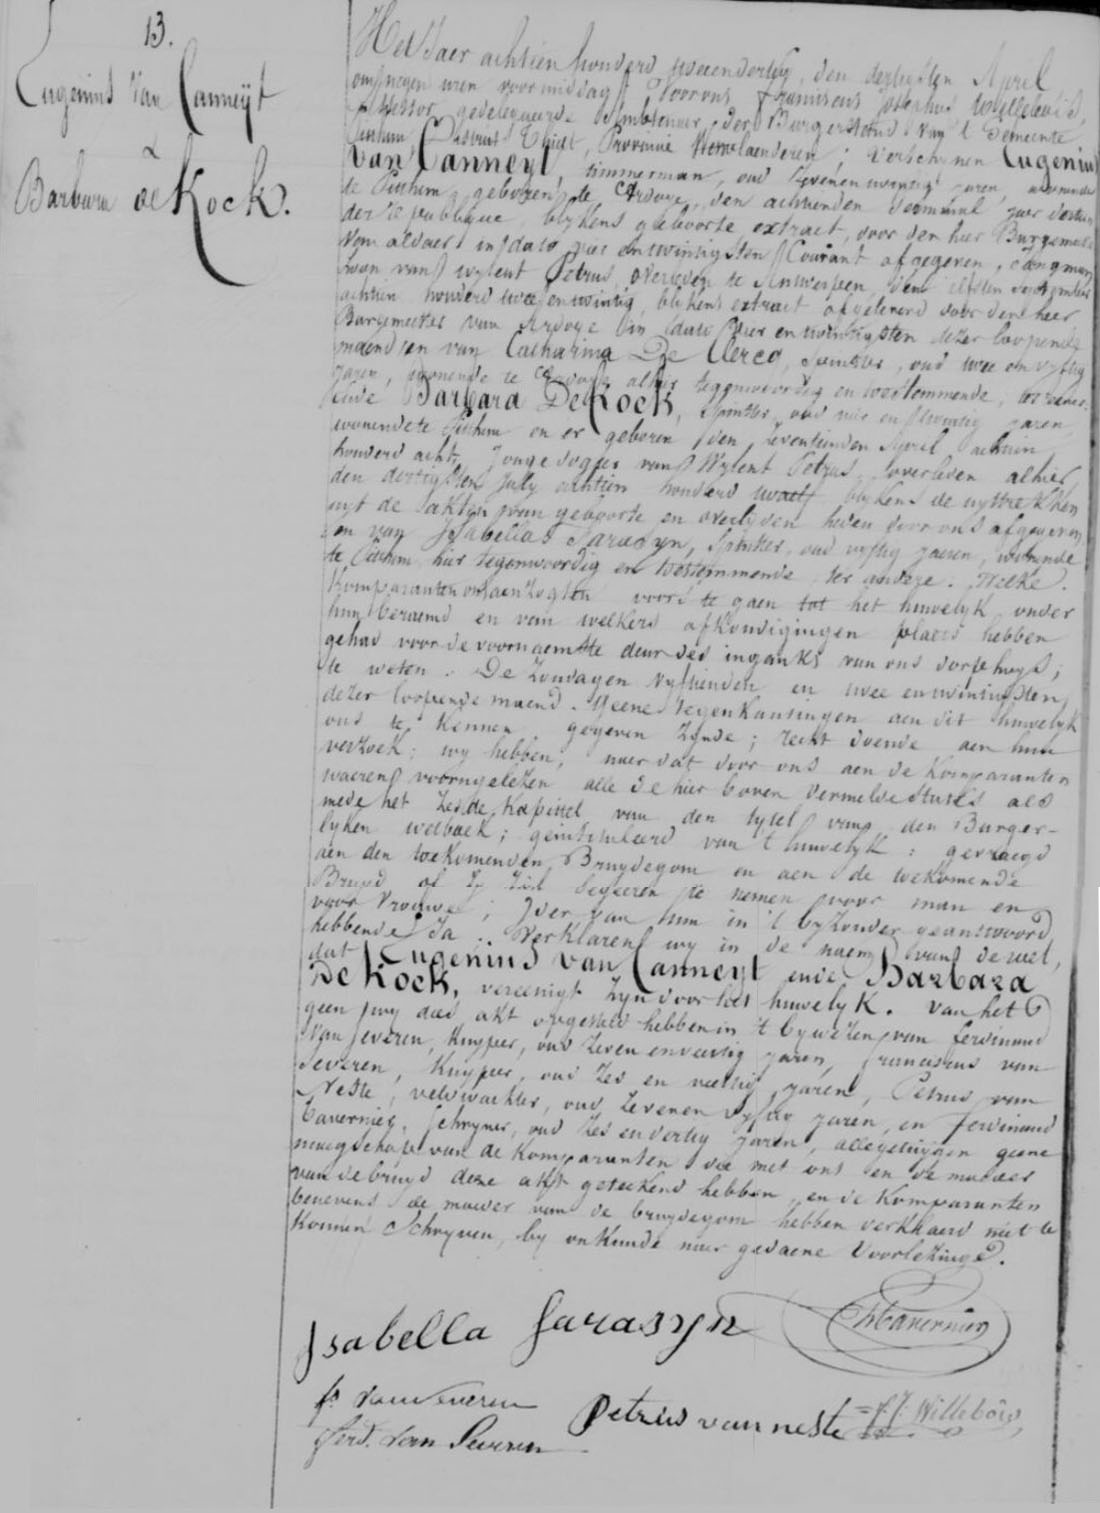 13.
Eugenius Van Canneyt
&
Barbara de Kock.
Het Jaer achtien honderd tweendertig, den dertigsten April
om negen uren voormiddag, voor ons Franciscus Josephus Willebois,
Assessor gedelegueerde Ambtenaer der Burgerstand van 't Gemeente
Pitthem, District Thielt, Provincie Westvlaenderen; verschenen Eugenius
Van Canneyt, timmerman, oud zevenentwintig jaren, wonende
te Pitthem, geboren te Ardoye, den achtienden Germinal jaer dertien
der republique, blykens geboorte extract, door den heer Burgemeester
van aldaer in dato vier entwintigsten Courant afgegeven, Jongman
zoon van wylent Petrus, overleden te Antwerpen, den elfsten September
achtien honderd twee entwintig, blykens extract afgeleverd door den heer
Burgemeester van Ardoye in dato vier entwintigsten dezer loopende
maend en van Catharina De Clercq, spinster, oud twee en vyftig
jaren, wonende te Ardoye alhier tegenwoordig en toestemmende, ter eener.
Ende Barbara De Kock, Spinster, oud vier en twintig jaren
wonende te Pitthem en er geboren den zeventienden April achtien
honderd acht, Jonge dogter van Wylent Petrus, overleden alhier
den dertigsten July achtien honderd twaelf blykens de uyttrekken
uyt de akten van geboorte en overlyden heden door ons afgegeven
en van Isabella Sarasyn, Spinster, oud vyftig jaren, wonende
te Pitthem, hier tegenwoordig en toestemmende, ter andere. Welke
Komparanten ons aenzogten voord te gaen tot het huwelyk, onder
hun beraemd en van welkers afkondigingen plaets hebben
gehad voor de voornaemste deur des ingangs van ons dorpshuys;
te weten: De Zondagen vyftienden en twee entwintigsten
dezer loopende maend. Geene tegenkantingen aen dit huwelyk
ons te kennen gegeven zynde; recht doende aen hun
verzoek; wy hebben, naer dat door ons aen de Komparanten
waeren voorengelezen alle de hier boven vermelde stuks als
mede het zesde Kapittel van den tytel van den Burger-
lyken wetboek; geintituleerd van 't huwelyk: gevraegd
aen den toekomenden Bruydegom en aen de toekomende
Bruyd of zy zich begeeren te nemen voor man en
voor Vrouwe; Jder van hun in 't byzonder geantwoord
hebbende Ja: Verklaren wy in de naem van de wet,
dat Eugenius Van Canneyt ende Barbara
De Kock, vereenigt zyn door het huwelyk. Van het
geen wy deze akt opgesteld hebben in 't bywezen van ferdinand
Van Severen, Kuyper, oud zeven enveertig jaren, Franciscus van
Severen, Kuyper, oud zes en veertig jaren, Petrus van
Neste, veldwachter, oud zevenen vyftig jaren, en ferdinand
Tavernier, Schryner, oud zes endertig jaren, alle getuygen geene
maegschap van de Komparanten die met ons en de moeder
van de bruyd deze akt geteekend hebben, en de Komparanten
benevens de moeder van de bruydegom hebben verklaerd niet te
konnen Schryven, by onkunde naer gedaene Voorlezinge.
Isabella Sarasyn
Tavernier
fs. Van Severen
Petrus van neste
f. J. Willebois
Ferd. Van Severen